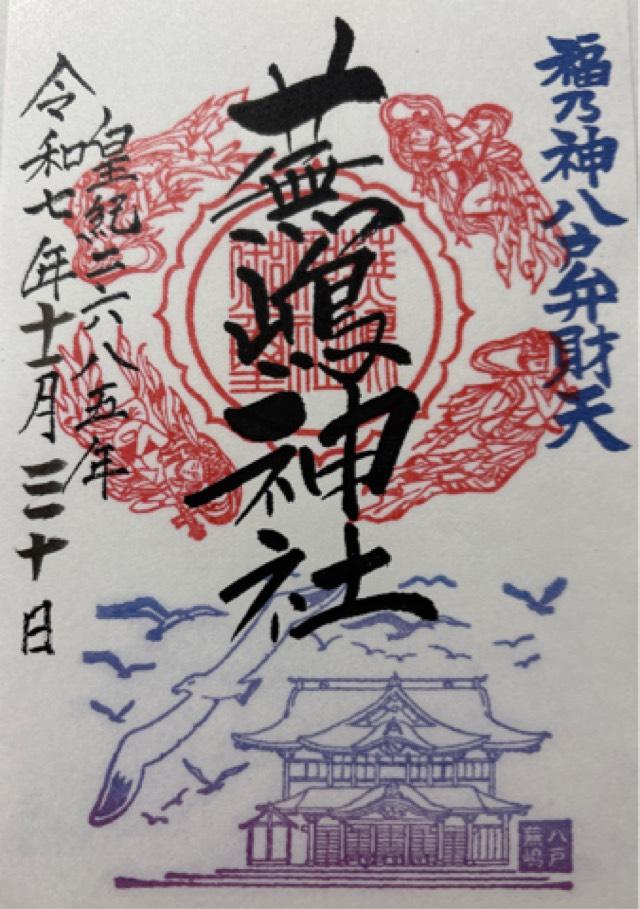 福乃神八戸弁財天
蕪嶋神社
皇紀二六八五年
令和七年十一月三十日
八戸
蕪嶋